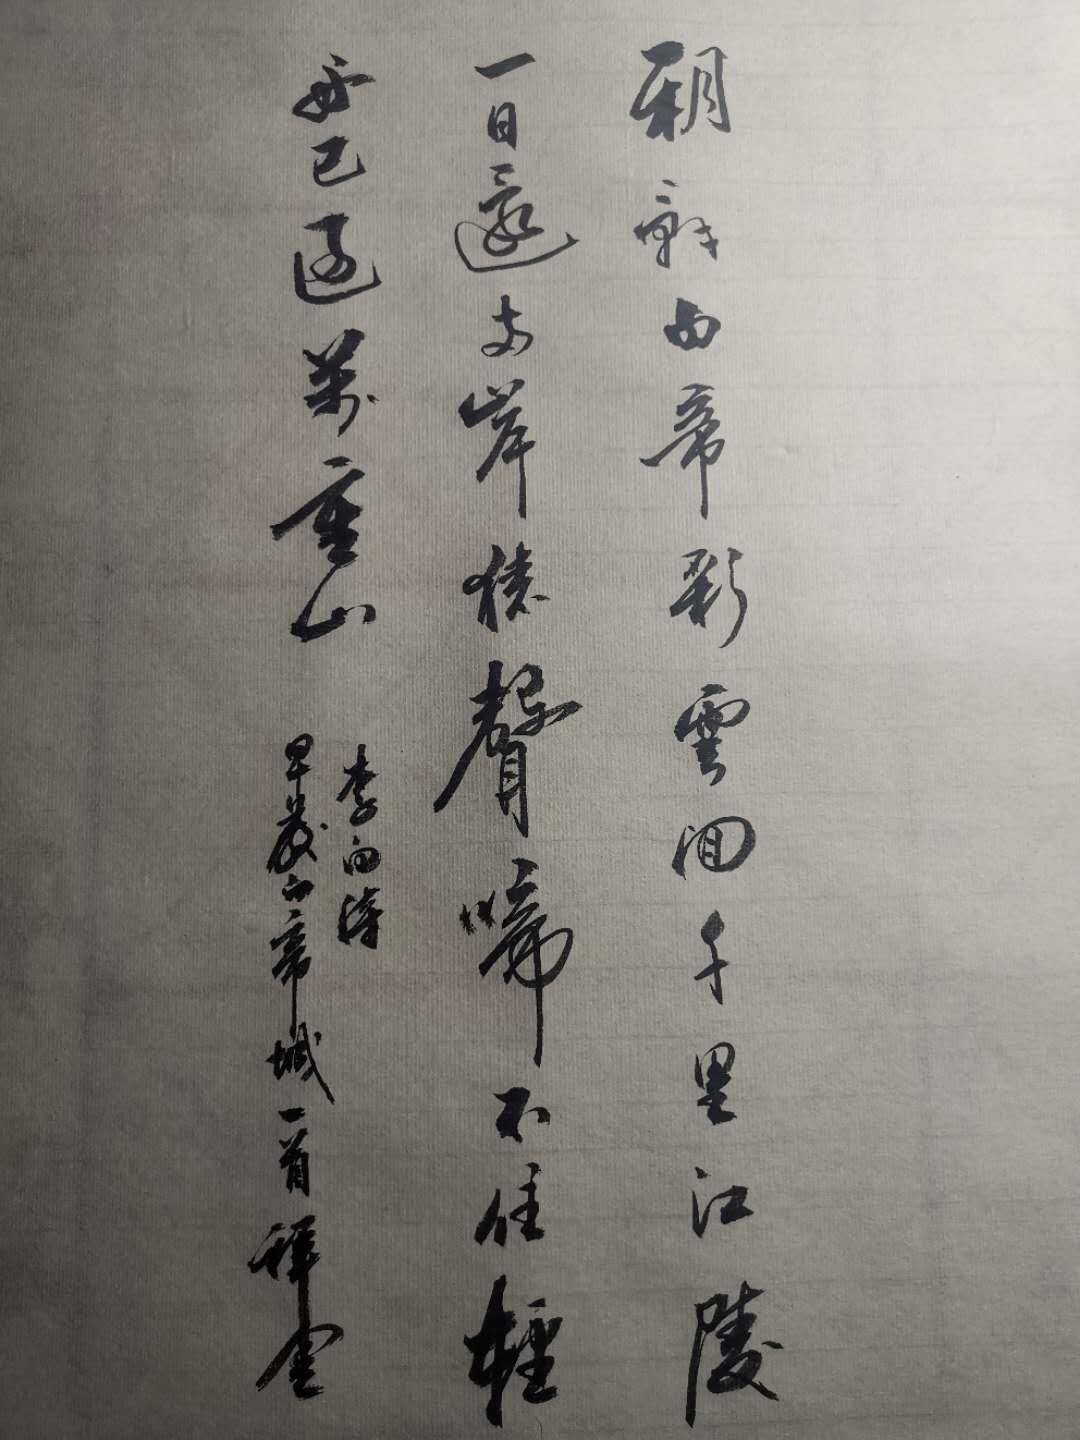 朝辭白帝彩雲間千里江陵
一日還兩岸猿聲啼不住輕
舟已過萬重山
李白詩
早發白帝城一首祥金